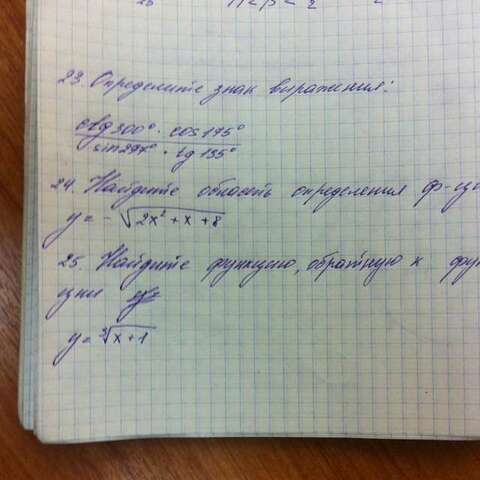 23. Определите знак выражения:
ctg 300° · cos 175°
sin 297° · tg 135°
24. Найдите область определения ф-ци
y = - √2x² + x + 8
25. Найдите функцию, обратную к фун
ции
y = ³√x + 1